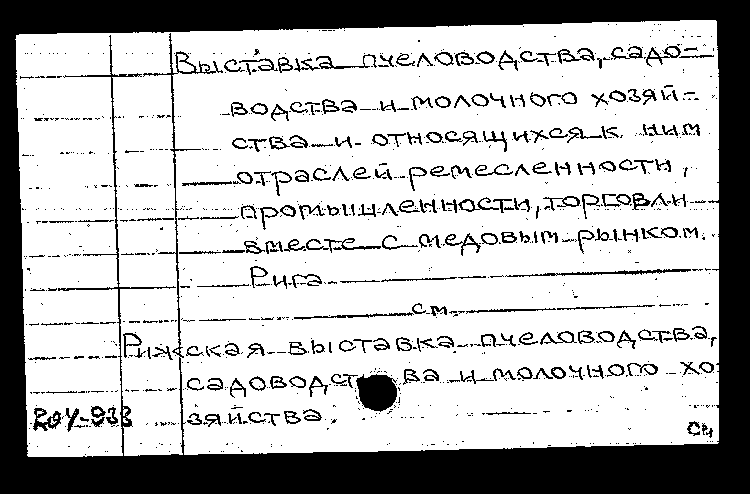 Выставка пчеловодства, садо-
водства и молочного хозяй-
ства и относящихся к ним
отраслей ремесленности,
промышленности, торговли
вместе с медовым рынком.
Рига
см.
Рижская выставка пчеловодства,
садоводства и молочного хо
зяйства.
204-933
см